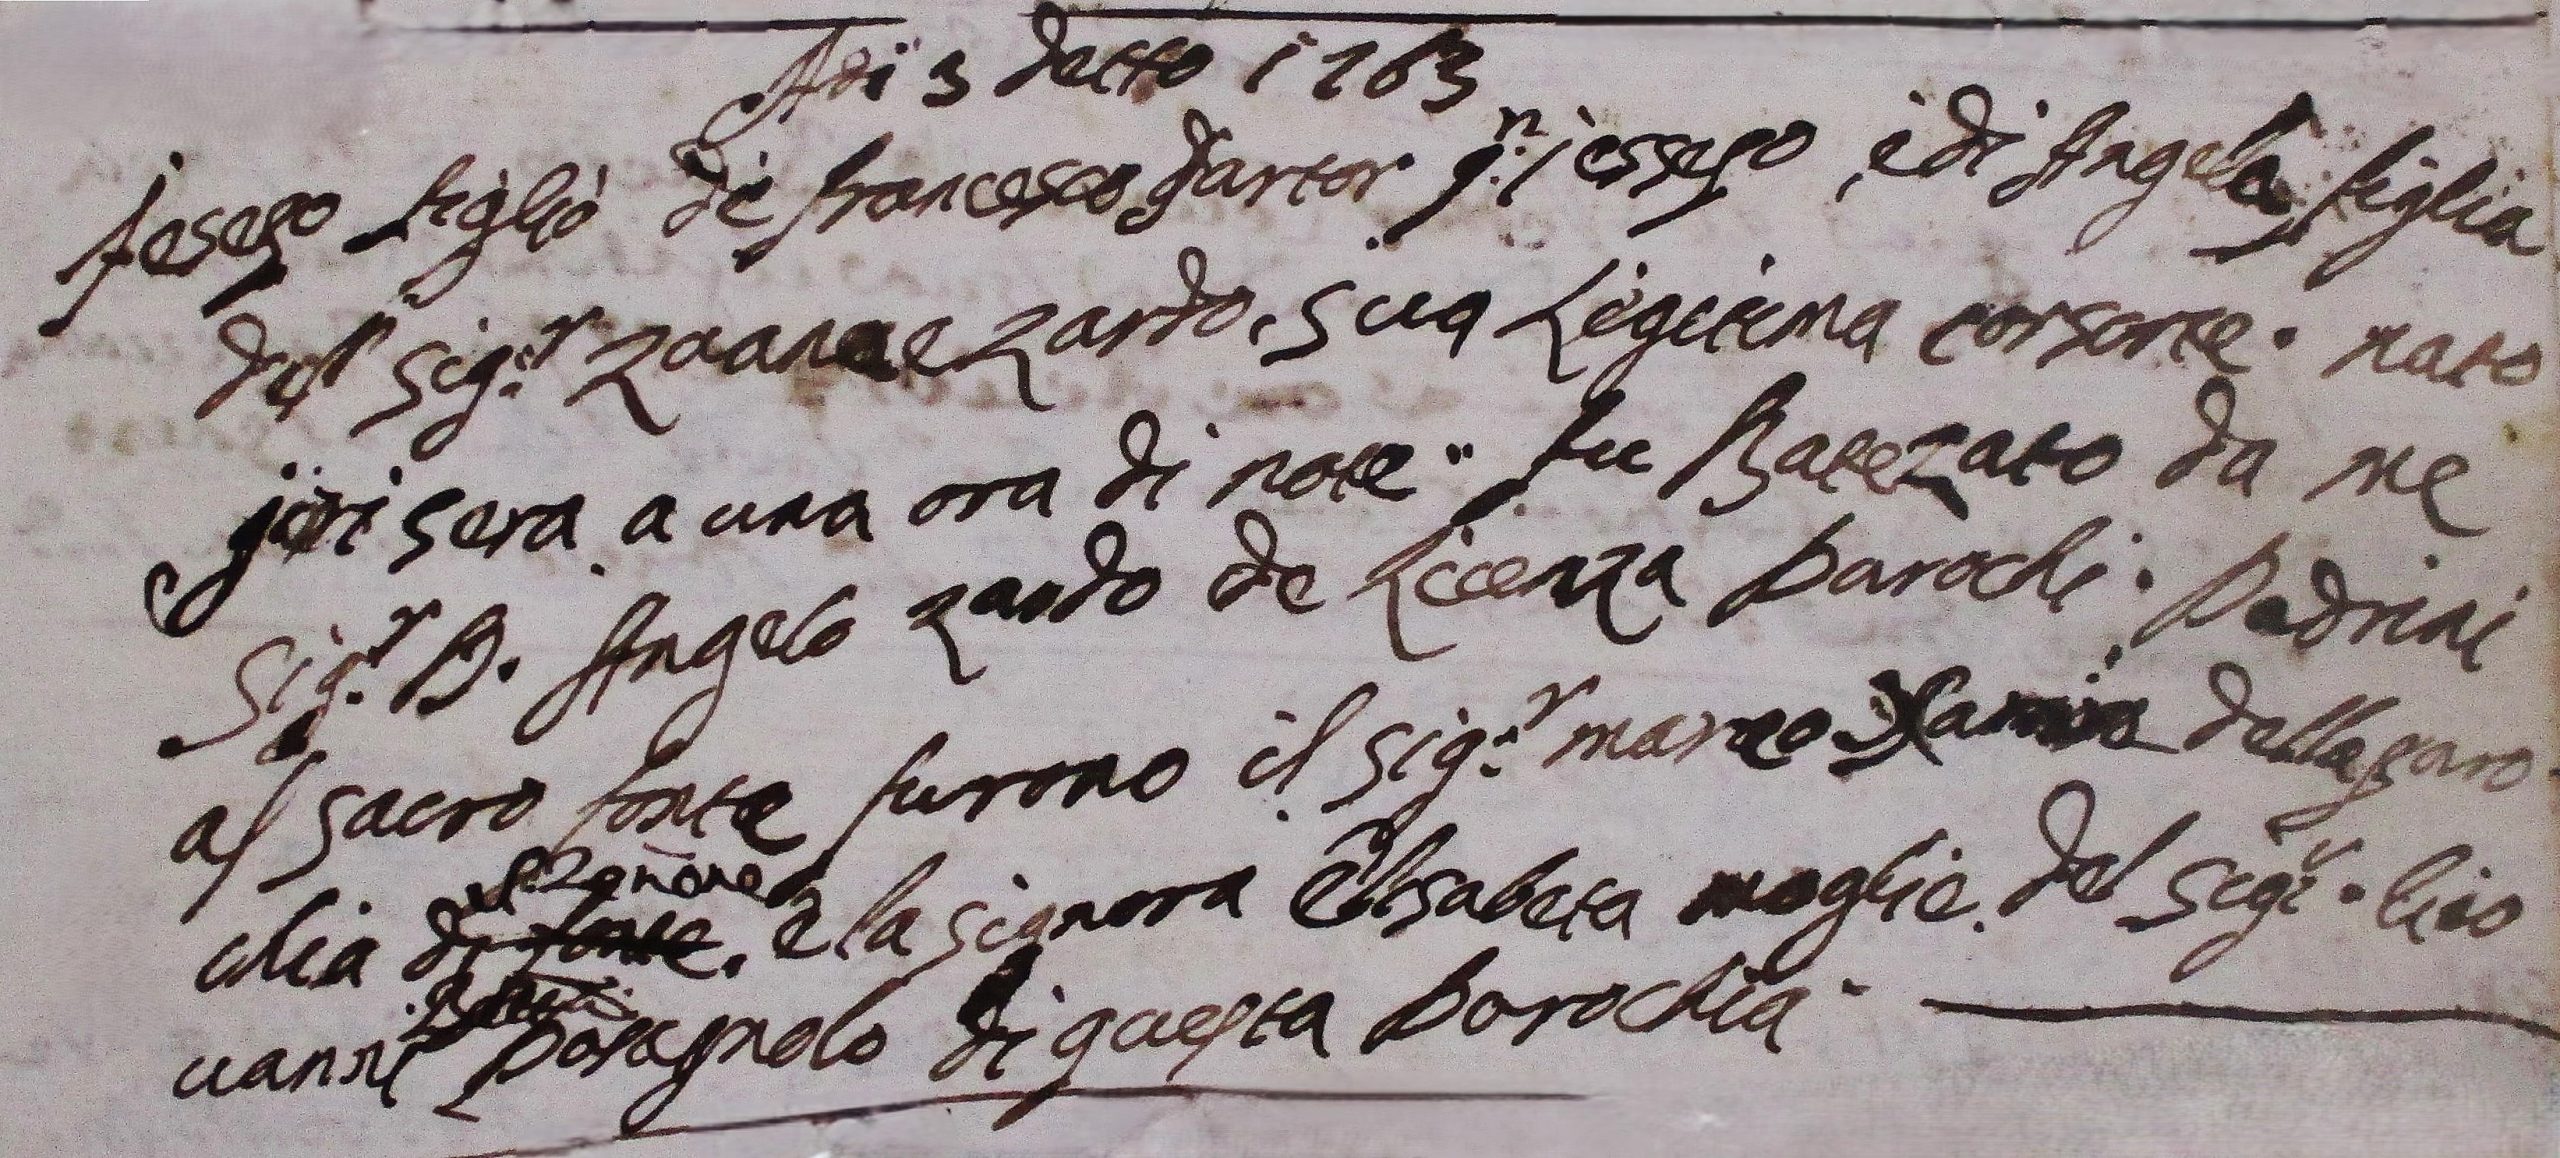 Adi 3 detto 1763
Jesepo figlio di Francesco Sartor q.n iessepo, e di Angela figlia
del Sig.r Zuanne Zardo, sua Legitima consorte. nato
jeri sera a una ora di note. fu Batezato da me
Sig.r D. Angelo Zardo de Licenza Parochi. Padrini
al sacro fonte furono il Sig.r marco della paro
chia di fonte. e la signora Elisabeta moglie del Sig.r Gio
uanni di questa Parochia.